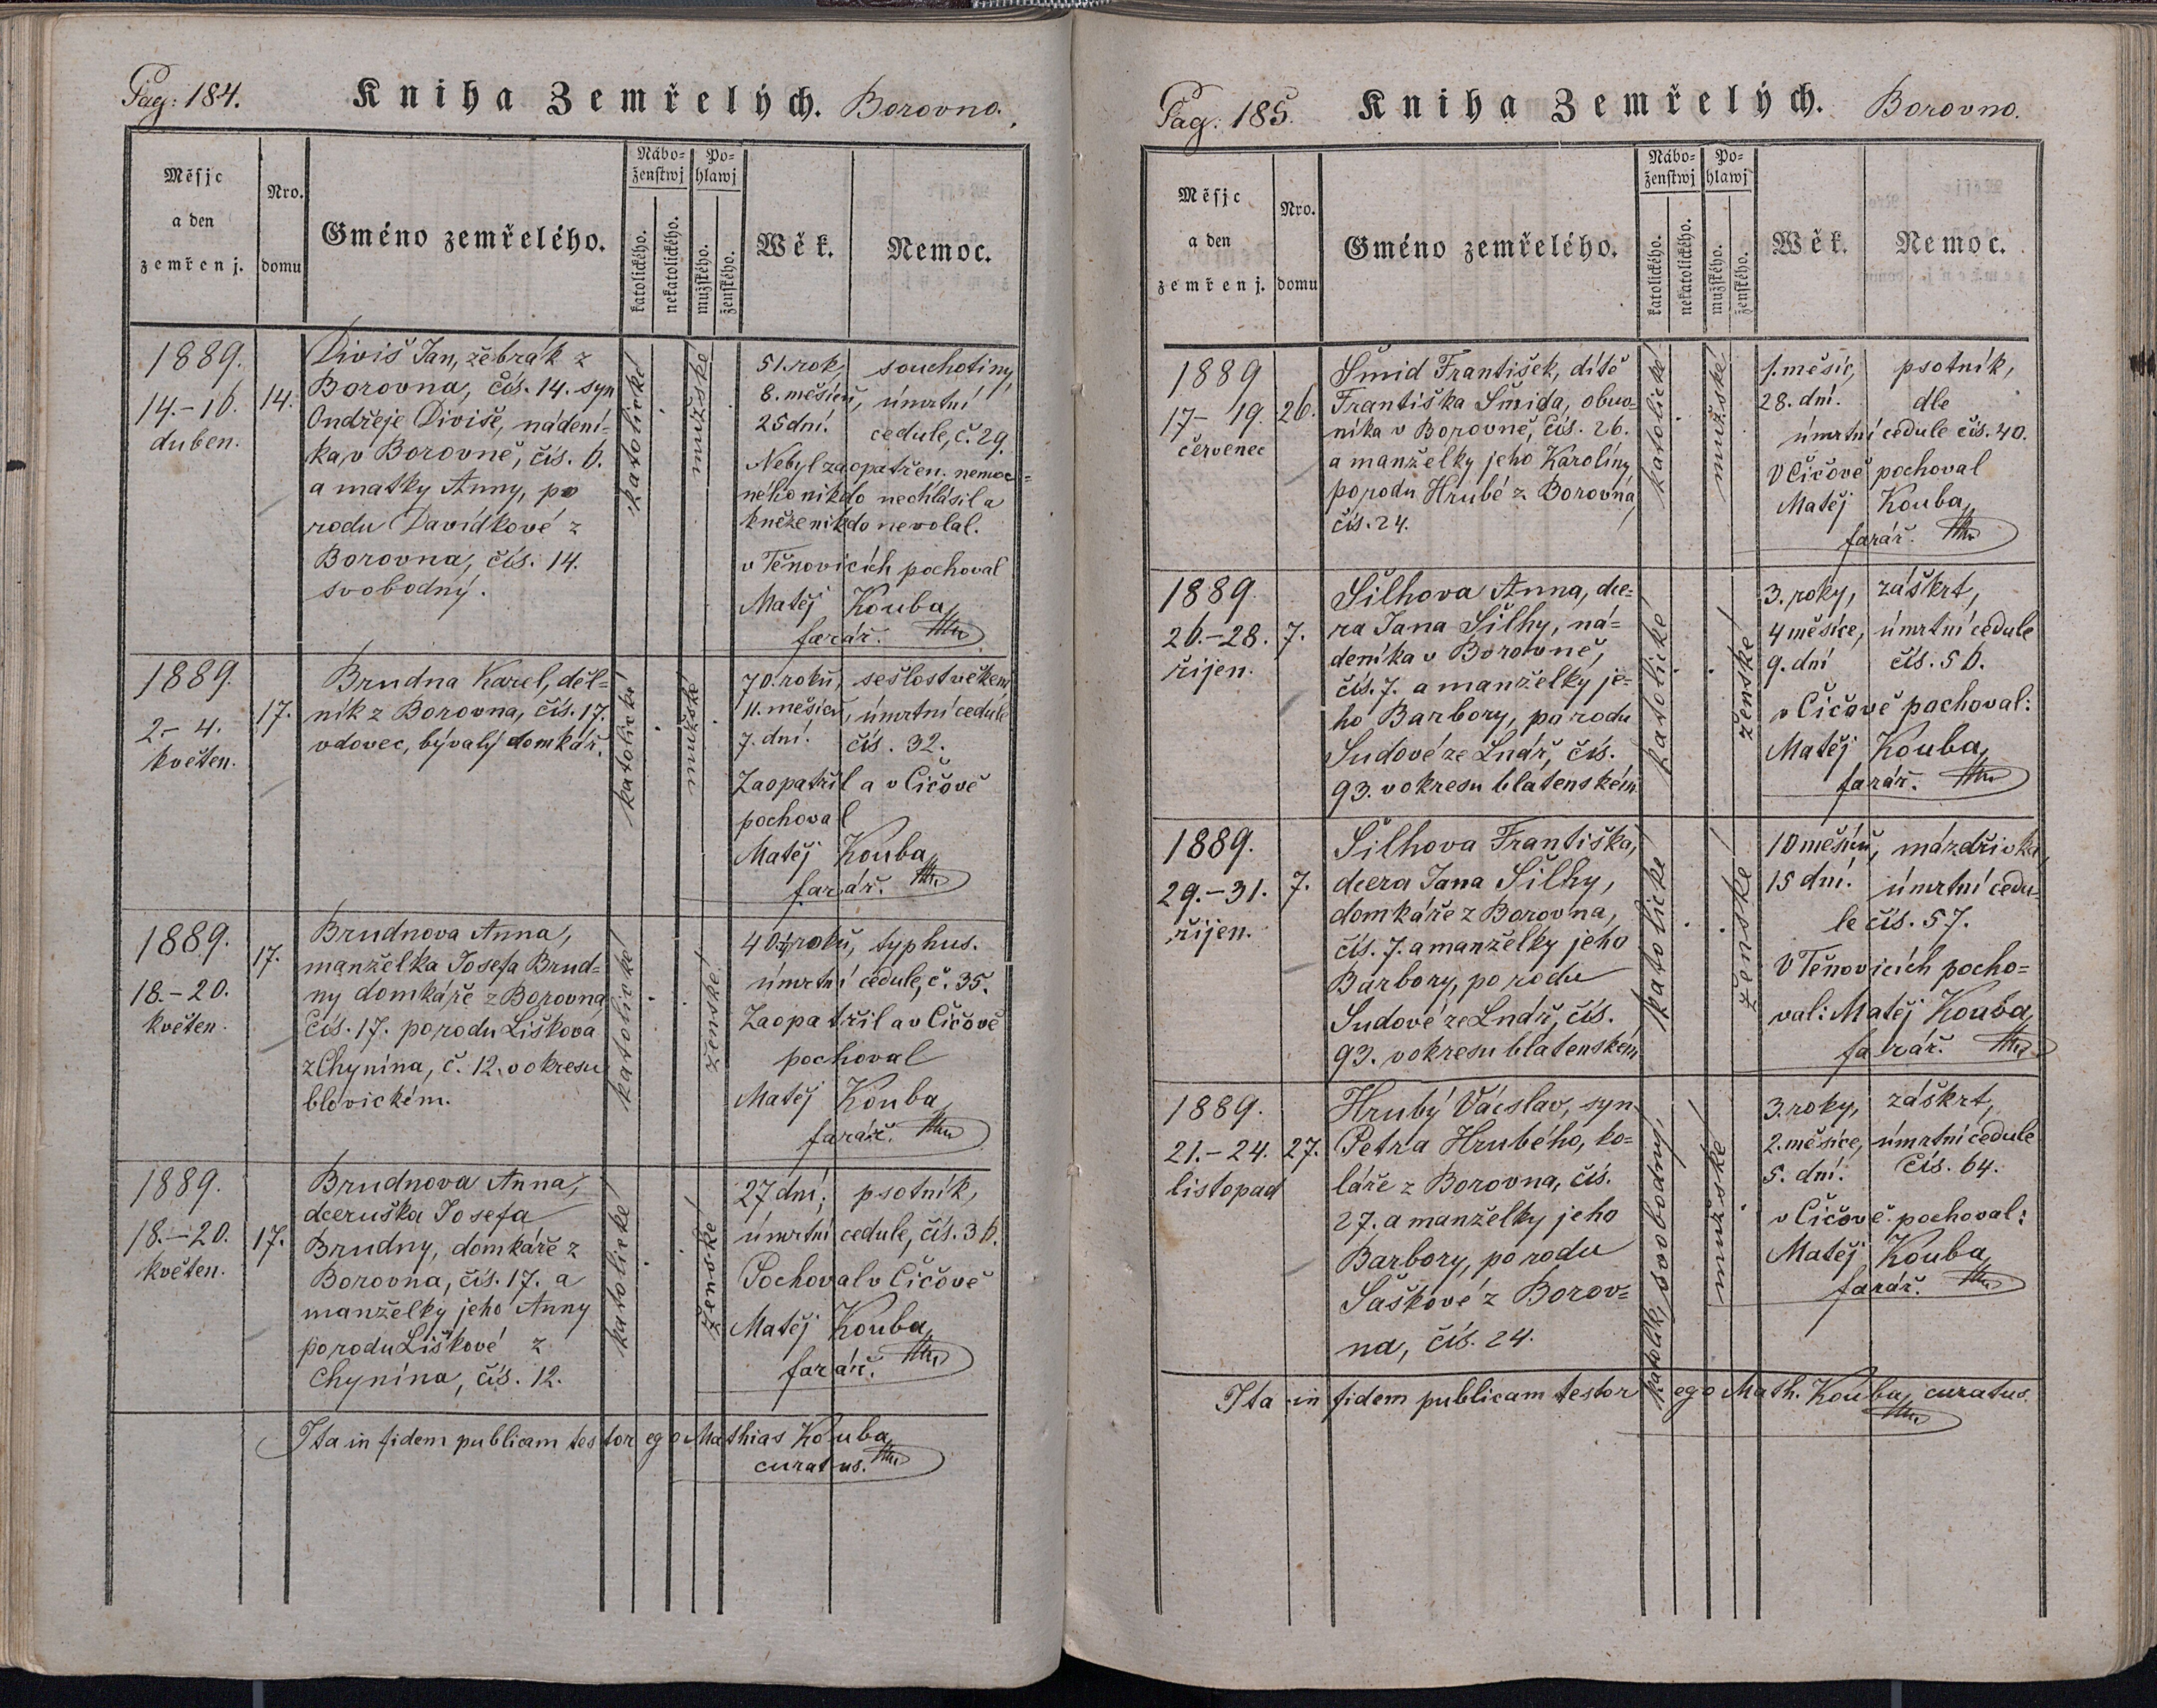 Pag: 184.
Kniha Zemřelých. Borovno.
Měsjc a den zemřenj.
Nro. domu
Gméno zemřelého.
Nábo=
ženstwj
katolického.
nekatolického.
Po=
hlawj
mužského.
ženského.
Wěk.
Nemoc.
1889.
14.-16.
duben.
14.
Diviš Jan, žebrák z
Borovna, čís. 14. syn
Ondřeje Diviše, nádení=
ka v Borovně, čís. 6.
a matky Anny, po
rodu Davídkové z
Borovna, čís. 14.
svobodný.
katolické
mužské
51. rok, souchotiny,
8. měsíců, úmrtní
25 dní. cedule, č. 29.
Nebyl zaopatřen. nemoc=
ného nikdo neohlásil a
kněze nikdo nevolal.
v Těnovicích pochoval
Matěj Kouba,
farář.
1889.
2.- 4.
květen.
17.
Brudna Karel, děl=
ník z Borovna, čís. 17.
vdovec, bývalý domkář.
katolické
mužské
70. roků, sešlost věkem
11. měsíců, úmrtní cedule
7. dní. čís. 32.
Zaopatřil a v Číčově
pochoval
Matěj Kouba,
farář.
1889.
18.-20.
květen.
17.
Brudnova Anna,
manželka Josefa Brud=
ny domkáře z Borovna,
čís. 17. po rodu Lišková
z Chynína, č. 12. v okresu
blovickém.
katolické
ženské
roků, typhus.
úmrtní cedule, č. 35.
Zaopatřil a v Číčově
pochoval
Matěj Kouba,
farář.
1889.
18.-20.
květen.
17.
Brudnova Anna,
dceruška Josefa
Brudny, domkáře z
Borovna, čís. 17. a
manželky jeho Anny
po rodu Liškové z
Chynína, čís. 12.
katolické
ženské
27 dní; psotník,
úmrtní cedule, čís. 36.
Pochoval v Číčově
Matěj Kouba,
farář.
Ita in fidem publicam testor ego Mathias Kouba,
curatus.
Pag. 185.
Kniha Zemřelých. Borovno.
Měsjc a den zemřenj.
Nro. domu
Gméno zemřelého.
Nábo=
ženstwj
katolického.
nekatolického.
Po=
hlawj
mužského.
ženského.
Wěk.
Nemoc.
1889
17- 19.
červenec
26.
Šmid František, dítě
Františka Šmida, obuv=
níka v Borovně, čís. 26.
a manželky jeho Karolíny
po rodu Hrubé z Borovna,
čís. 24.
katolické
mužské
1. měsíc, psotník,
28. dní. dle
úmrtní cedule čís. 40.
V Číčově pochoval
Matěj Kouba,
farář.
1889.
26.-28.
říjen.
7.
Šilhova Anna, dce=
ra Jana Šilhy, ná=
deníka v Borovně,
čís. 7. a manželky je=
ho Barbory, po rodu
Sudové ze Lnář, čís.
93. v okresu blatenském
katolické
ženské
3. roky, záškrt,
4 měsíce, úmrtní cedule
9. dní čís. 56.
v Číčově pochoval:
Matěj Kouba,
farář.
1889.
29.-31.
říjen.
7.
Šilhova Františka,
dcera Jana Šilhy,
domkáře z Borovna,
čís. 7. a manželky jeho
Barbory, po rodu
Sudové ze Lnář, čís.
93. v okresu blatenském
katolické
ženské
10 měsíců, mázdřivka,
15 dní. úmrtní cedu=
le čís. 57.
V Těnovicích pocho=
val: Matěj Kouba,
farář.
1889.
21.-24.
listopad
27.
Hrubý Václav, syn
Petra Hrubého, ko=
láře z Borovna, čís.
27. a manželky jeho
Barbory, po rodu
Šaškové z Borov=
na, čís. 24.
katolík, svobodný,
mužské
3. roky, záškrt,
2. měsíce, úmrtní cedule
5. dní. čís. 64.
v Číčově pochoval:
Matěj Kouba,
farář.
Ita in fidem publicam testor ego Math. Kouba, curatus.